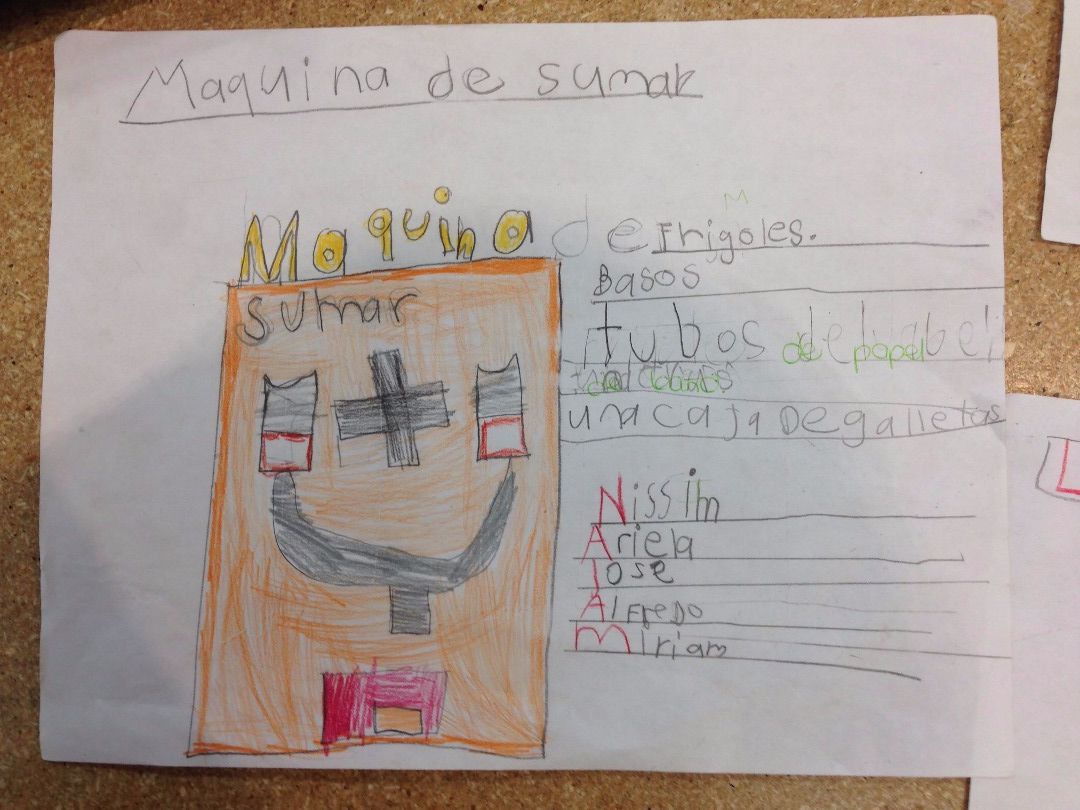 Maquina de sumar
M
Maquina de
Frigoles.
sumar
Basos
tubos de papel
una caja De galletas
Nissim
Ariela
Jose
AlFreDo
Miriam